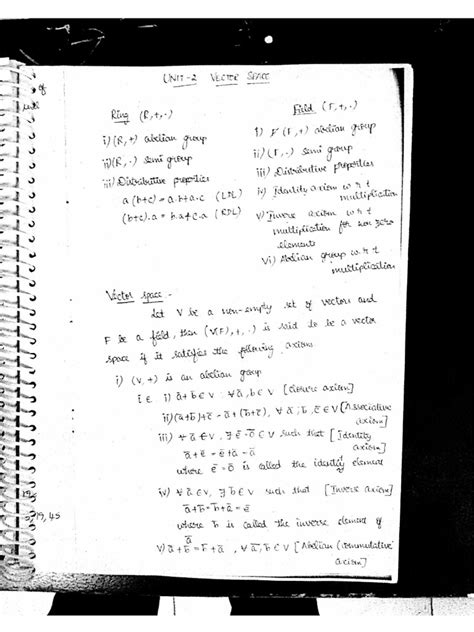 UNIT-2 VECTOR SPACE
Ring (R,+,.)
i) (R,+) abelian group
ii) (R,.) semi group
iii) Distributive properties
a(b+c) = a.b+a.c (LDL)
(b+c).a = b.a+c.a (RDL)
Field (F,+,.)
i) (F,+) abelian group
ii) (F,.) semi group
iii) Distributive properties
iv) Identity axiom w r t
multiplication
v) Inverse axiom w r t
multiplication for non zero
elements
vi) Abelian group w r t
multiplication
Vector space -
Let V be a non-empty set of vectors and
F be a field, then (V(F),+,.) is said to be a vector
space if it satisfies the following axioms
i) (V,+) is an abelian group
i.e. i) ā+b̄ ∈ V ∀ ā,b̄ ∈ V [closure axiom]
ii) (ā+b̄)+c̄ = ā+(b̄+c̄), ∀ ā,b̄,c̄ ∈ V [Associative
axiom]
iii) ∀ ā ∈ V, ∃ ē=ō ∈ V such that [Identity
axiom]
ā+ē = ē+ā = ā
where ē=ō is called the identity element
iv) ∀ ā ∈ V, ∃ b̄ ∈ V such that [Inverse axiom]
ā+b̄ = b̄+ā = ē
where b̄ is called the inverse element of
ā
v) ā+b̄ = b̄+ā, ∀ ā,b̄ ∈ V [Abelian (commutative
axiom]
19,45